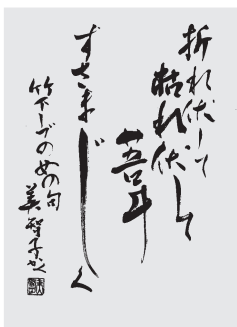 折れ伏して
枯れ伏して
菩斗
すさまじく
竹下しづの女の句
美智子かく